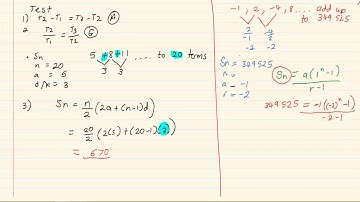 Test
1) T2 - T1 = T3 - T2 (A)
2 T2/T1 = T3/T2 (G)
• Sn
n = 20
a = 5
d/r = 3
5 + 8 + 11 .... to 20 terms
3 3
3) Sn = n/2 (2a + (n-1)d)
= 20/2 (2(5) + (20-1)(3))
= 670
-1, 2, -4, 8 ... add up
to 349525
2/-1 -4/2
-2 -2
Sn = 349525
n =
a = -1
r = -2
Sn = a(r^n - 1)/r-1
349525 = -1((-2)^n - 1)/-2-1